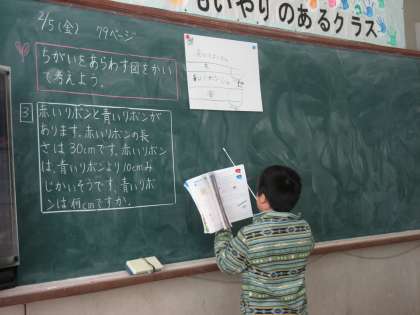 もいやりのあるクラス
2/5(金) 79ページ
ちがいをあらわす図をかい
て考えよう。
3
赤いリボンと青いリボンが
あります。赤いリボンの長
さは30cmです。赤いリボン
は、青いリボンより10cmみ
じかいそうです。青いリボ
ンは何cmですか。